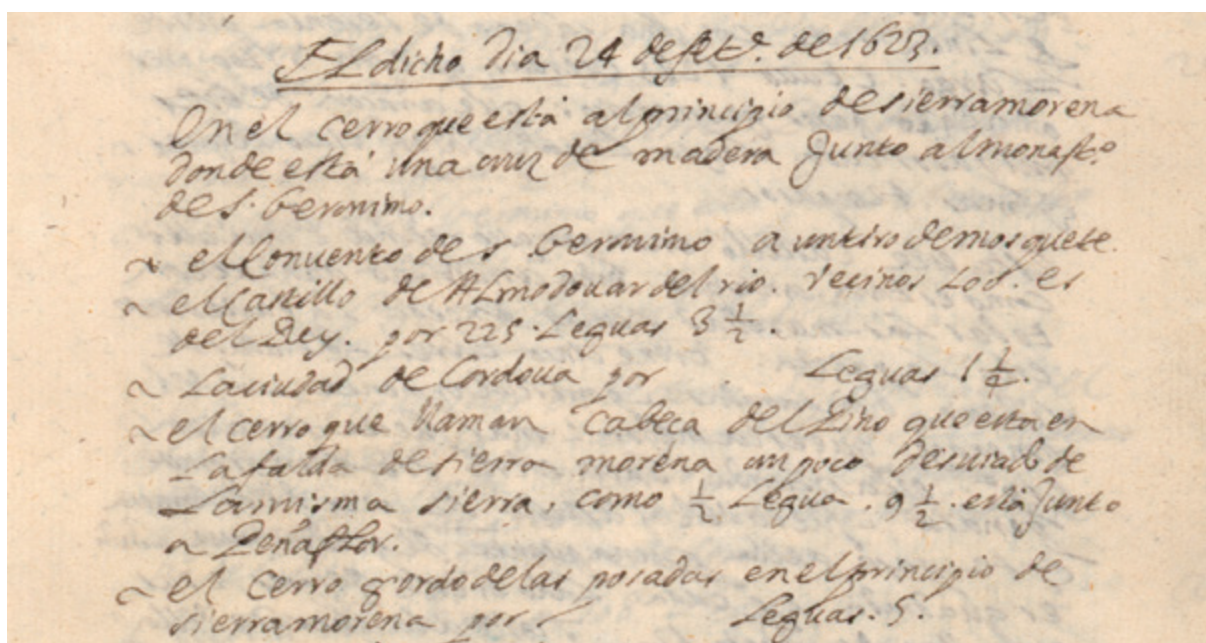 El dicho dia 24 de sete. de 1623.
En el cerro que está al principio de sierramorena
donde está una cruz de madera Junto al monasto.
de S. Geronimo.
~ el Conuento de S. Geronimo a un tiro de mosquete.
~ el Castillo de Almodouar del rio. vecinos 200. es
del Rey. por 225. Leguas 3 1/2.
~ La ciudad de Cordoua por Leguas 1 1/2.
~ el cerro que llaman Cabeca del Pino que esta en
La falda de sierra morena un poco desuiado de
La misma sierra, como 1/2 Legua. 9 1/2. está Junto
a Peñaflor.
~ el cerro gordo de las posadas en el principio de
sierramorena por Leguas. 5.